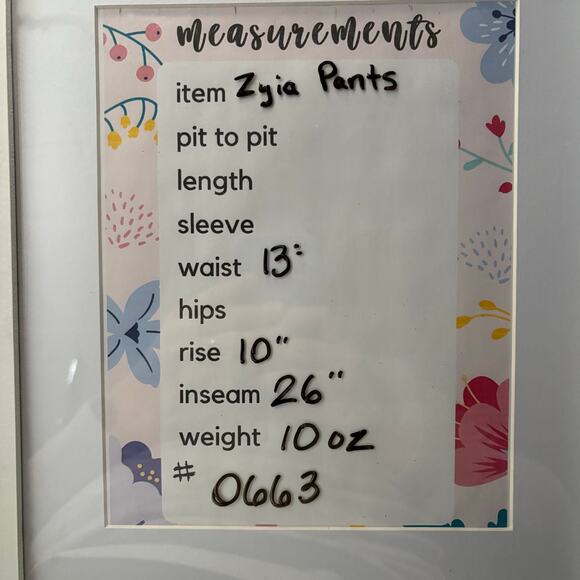 measurements
item Zyia Pants
pit to pit
length
sleeve
waist 13"
hips
rise 10"
inseam 26"
weight 10 oz
# 0663